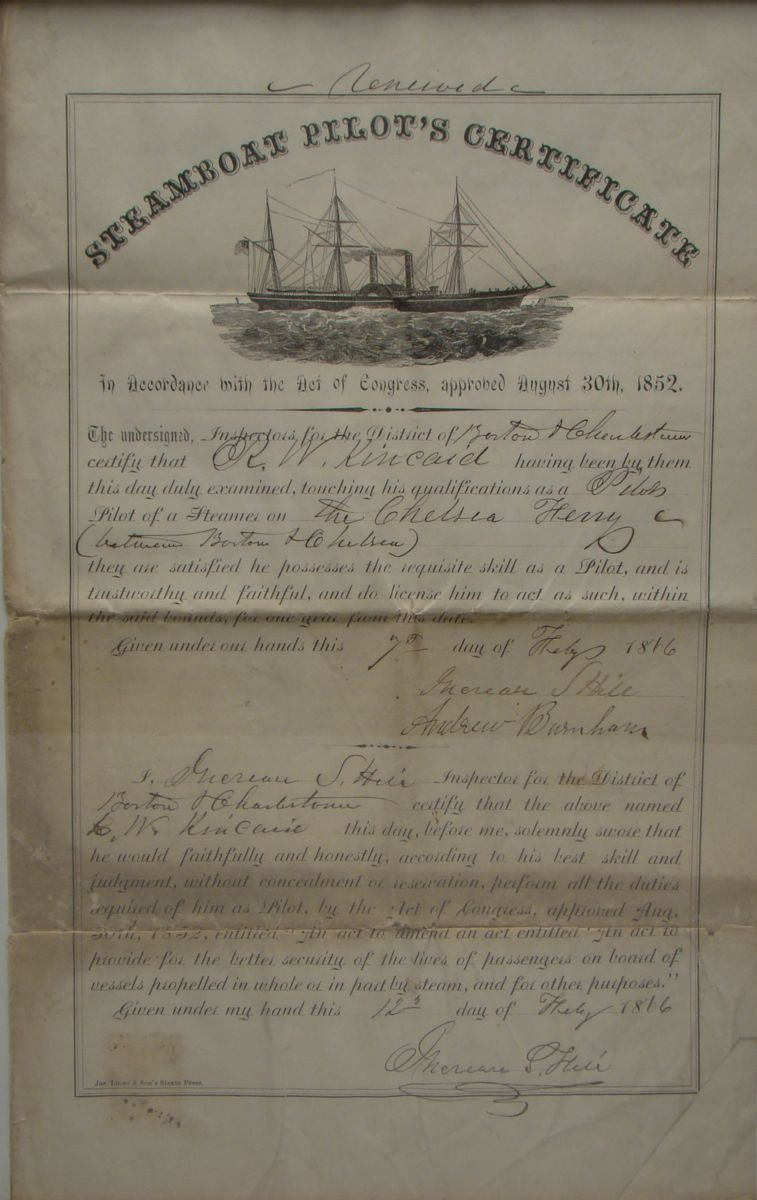 Renewed
STEAMBOAT PILOT'S CERTIFICATE
In Accordance with the Act of Congress, approved August 30th, 1852.
The undersigned, Inspectors for the District of Boston & Charlestown
certify that K. W. Kincaid having been by them
this day duly examined, touching his qualifications as a Pilot
Pilot of a Steamer on the Chelsea Ferry
(between Boston & Chelsea)
they are satisfied he possesses the requisite skill as a Pilot, and is
trustworthy and faithful, and do license him to act as such, within
the said bounds, for one year from this date.
Given under our hands this 7th day of Feby 1866
Increase S. Hill
Andrew Burnham
I, Increase S. Hill Inspector for the District of
Boston & Charlestown certify that the above named
K. W. Kincaid this day, before me, solemnly swore that
he would faithfully and honestly, according to his best skill and
judgment, without concealment or reservation, perform all the duties
required of him as Pilot, by the Act of Congress, approved Aug.
30th, 1852, entitled "An act to amend an act entitled "An act to
provide for the better security of the lives of passengers on board of
vessels propelled in whole or in part by steam, and for other purposes."
Given under my hand this 12th day of Feby 1866
Increase S. Hill
& Son's Steam Press.